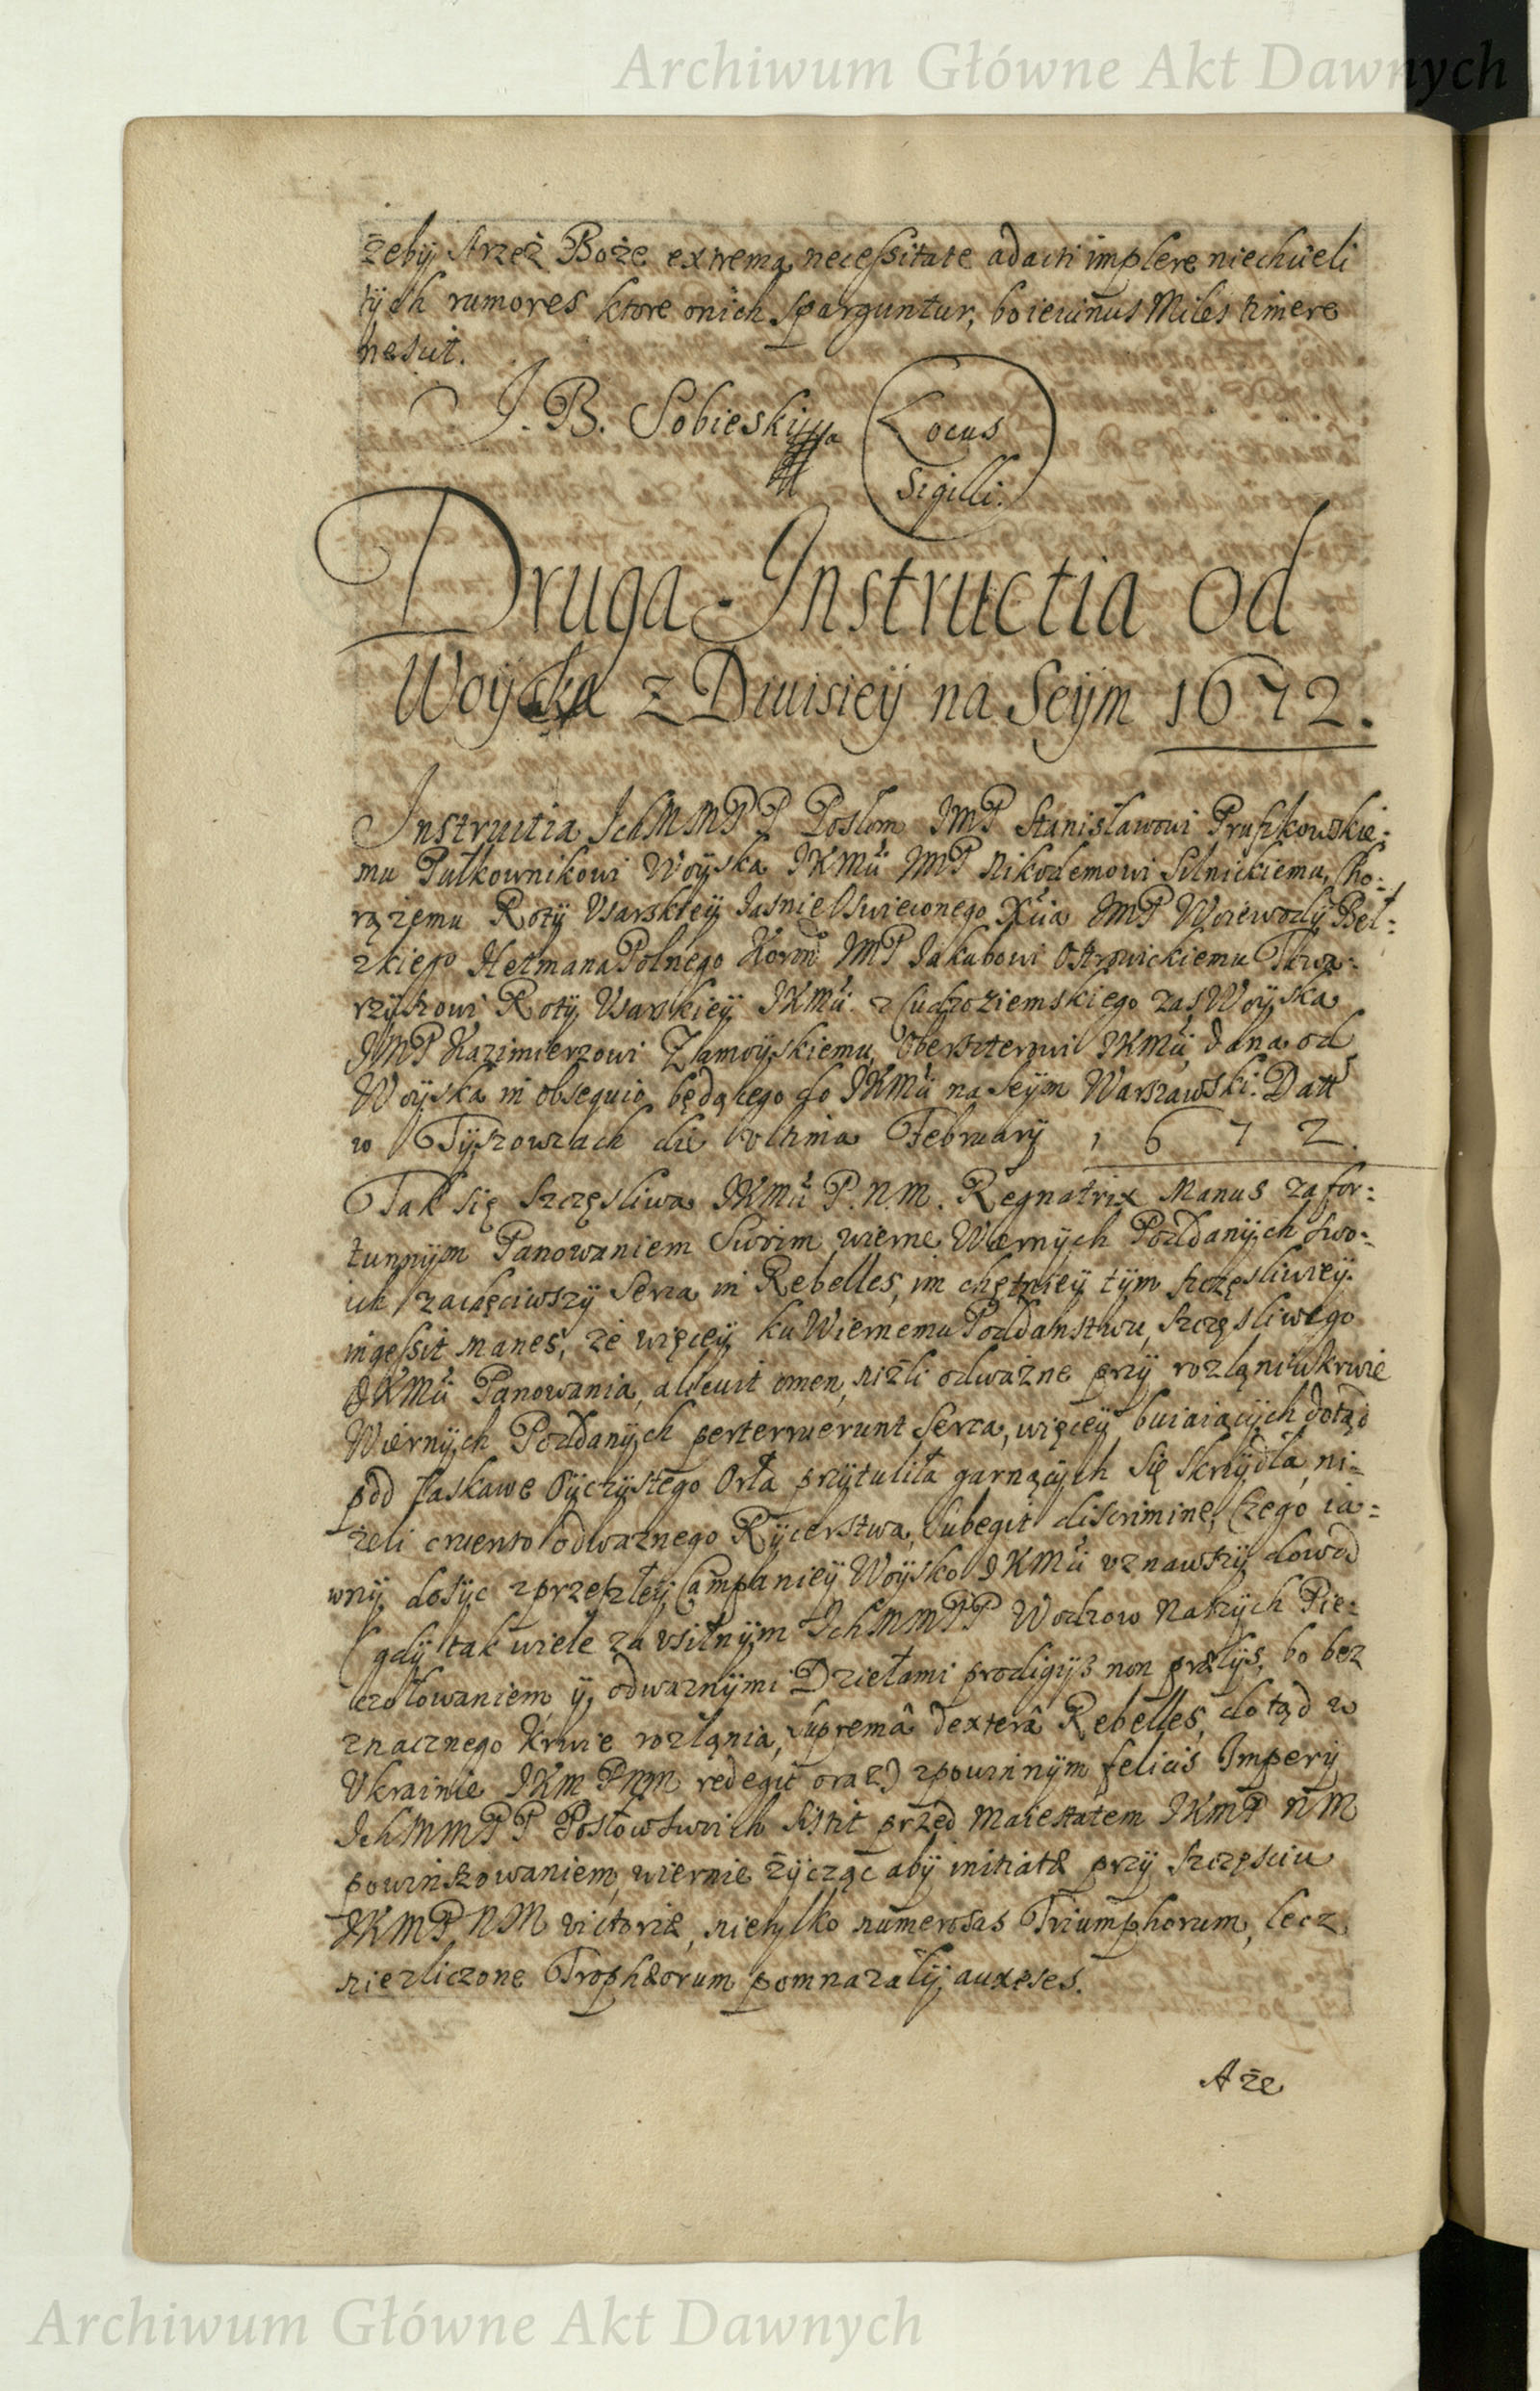 Archiwum Główne Akt Dawnych
żebÿ strzeż Boże extrema necessitate adacti implere niechcieli
tÿch rumores ktore onich sparguntur, bo ieiunus Miles timere
nescit.
J. B. Sobieski
Locus
Sigilli.
Druga Instructia od
Woÿska z Diuisieÿ na Seÿm 1672.
Instructia IchMMPP Posłom JMP Stanisławowi Pruszkowskie:
mu Pułkownikowi Woÿska JKMci JMP Nikodemowi Silnickiemu, Cho:
rążemu Rotÿ Vsarskieÿ Jasnie Oswieconego Xcia JMP Woiewodÿ Bel:
zkiego Hetmana Polnego Koron JMP Jakubowi Ostrowickiemu Thwa:
rzÿszowi Rotÿ Vsarskieÿ JKMci z Cudzoziemskiego zas Woÿska
JMP Kazimierzowi Zamoÿskiemu Obersterowi JKMci dana od
Woÿska in obsequio będącego do JKMci na Seÿm Warszawski. Datt
w Tÿszowcach die vltima Februarÿ 1672.
Tak się szczęsliwa JKMci P.N.M. Regnatrix Manus zafor:
tunnÿm Panowaniem Swoim wierne Wiernÿch Poddanÿch swo:
ich zachęciwszÿ Serca in Rebelles, im chętnieÿ tÿm szczęsliwieÿ
ingessit manes, że więceÿ ku Wiernemu Poddanstwu, szczęsliwego
JKMci Panowania, allicuit omen, niżli odważne przÿ rozlaniu krwie
Wiernÿch Poddanÿch perterruerunt Serca, więceÿ buiaiącÿch dotąd
pod łaskawe Oÿczÿstego Orła przÿtuliła garnącÿch się skrzÿdła, ni=
żeli cruento odważnego Rÿcerstwa, subegit discrimine, Czego ia=
wnÿ dosÿc zprzeszłeÿ Campanieÿ Woÿsko JKMci vznawszÿ dowod
(gdÿ tak wiele za vsilnÿm IchMMPP Wodzow Naszÿch Pie=
czołowaniem ÿ, odważnÿmi Dziełami prodigijs non prælijs, bo bez
znacznego Krwie rozlania, supremâ dexterâ Rebelles, dotąd w
Vkrainie JKM PNM redegit oraz) zpowinnÿm felicis Imperij
IchMMPP Posłow swoich sistit przed Maiestatem JKMP NM
powinszowaniem, wiernie życząc abÿ initiatæ przÿ szczęsciu
JKMP NM victoriæ, nietylko numerosas Triumphorum, lecz
niezliczone Trophæorum pomnażalÿ auxeses.
A że
Archiwum Główne Akt Dawnych